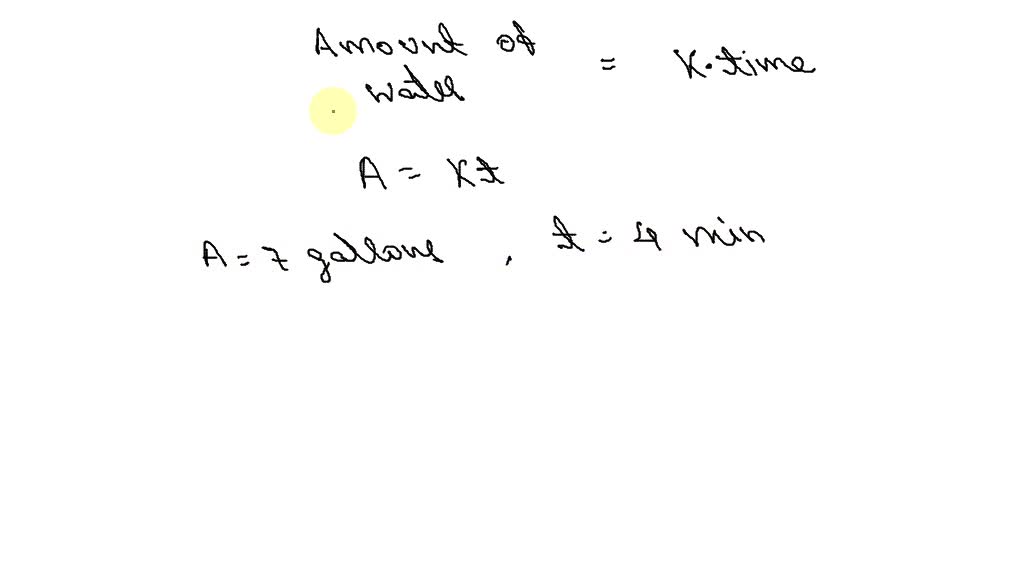 Amount of
water = K·time
A = Kt
A = 7 gallons , t = 4 min